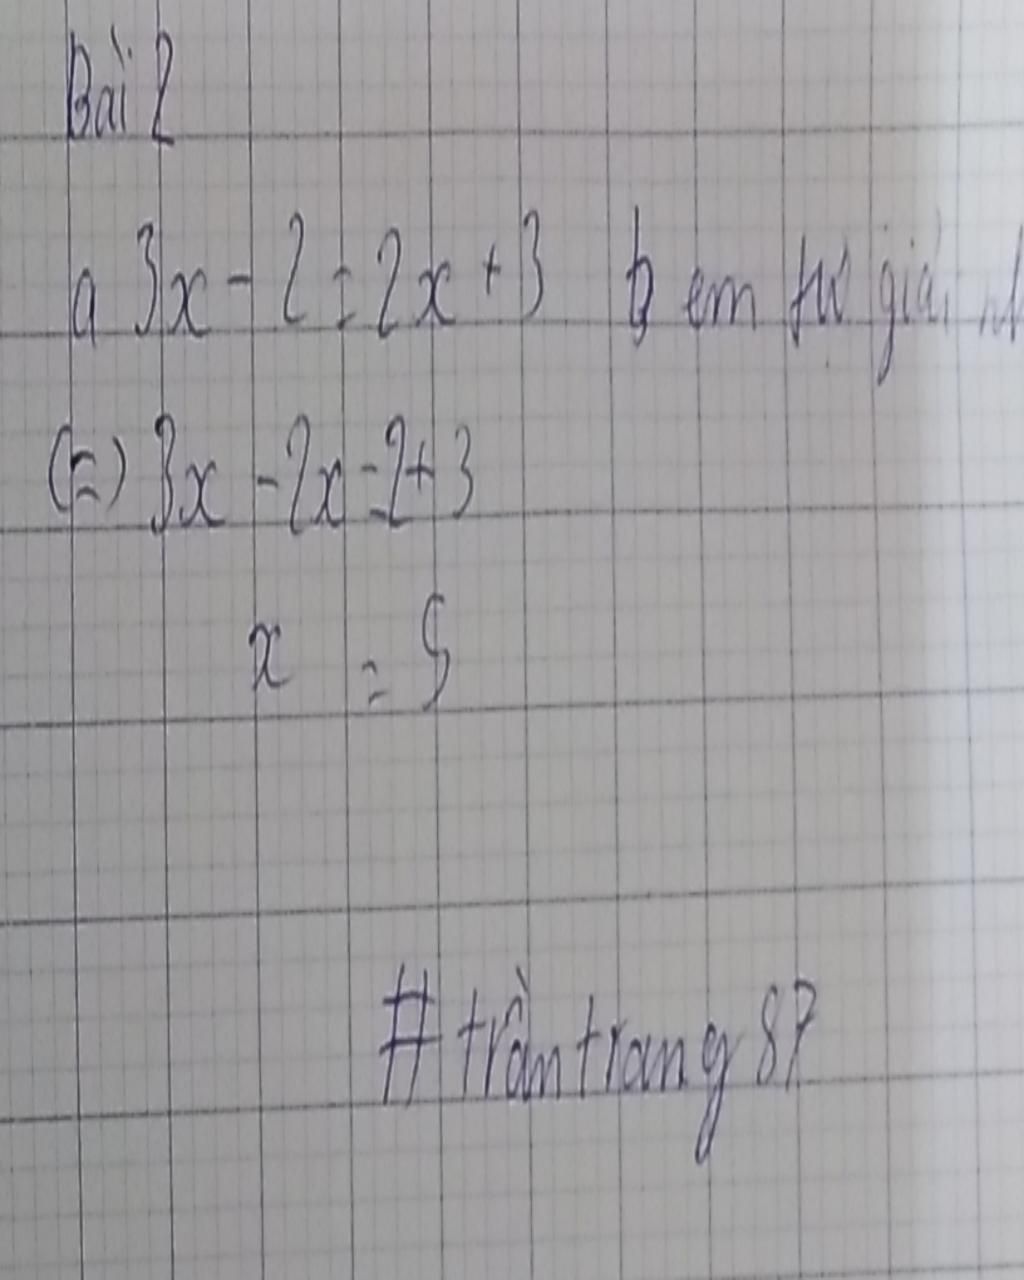 Bài 2
a 3x - 2 = 2x + 3 b em tự giải
(=) 3x - 2x = 2 + 3
x = 5
# trần trang 87